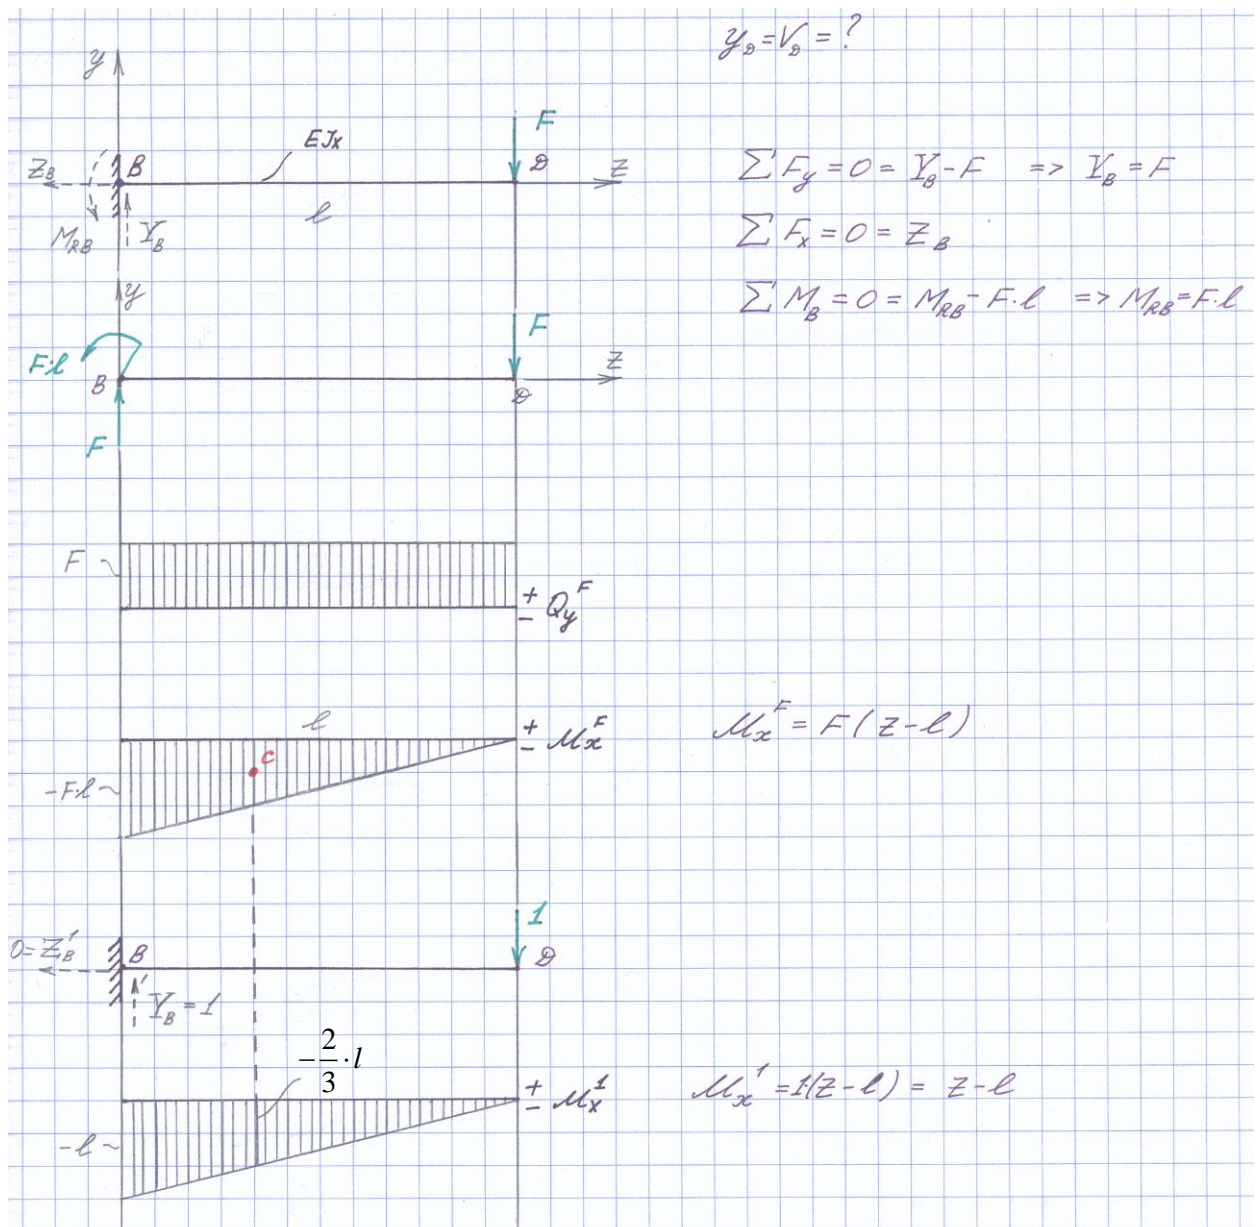 y_D = V_D = ?
y
F
EJx
Z_B B D z
l
M_RB Y_B
∑ F_y = 0 = Y_B - F => Y_B = F
∑ F_x = 0 = Z_B
∑ M_B = 0 = M_RB - F·l => M_RB = F·l
y
F
F·l
z
B D
F
F
+
- Q_y^F
l
+
- M_x^F
C
-F·l
M_x^F = F(z-l)
1
0 = Z_B^1 B D
Y_B^1 = 1
-2/3·l
+
- M_x^1
-l
M_x^1 = 1·(z-l) = z-l